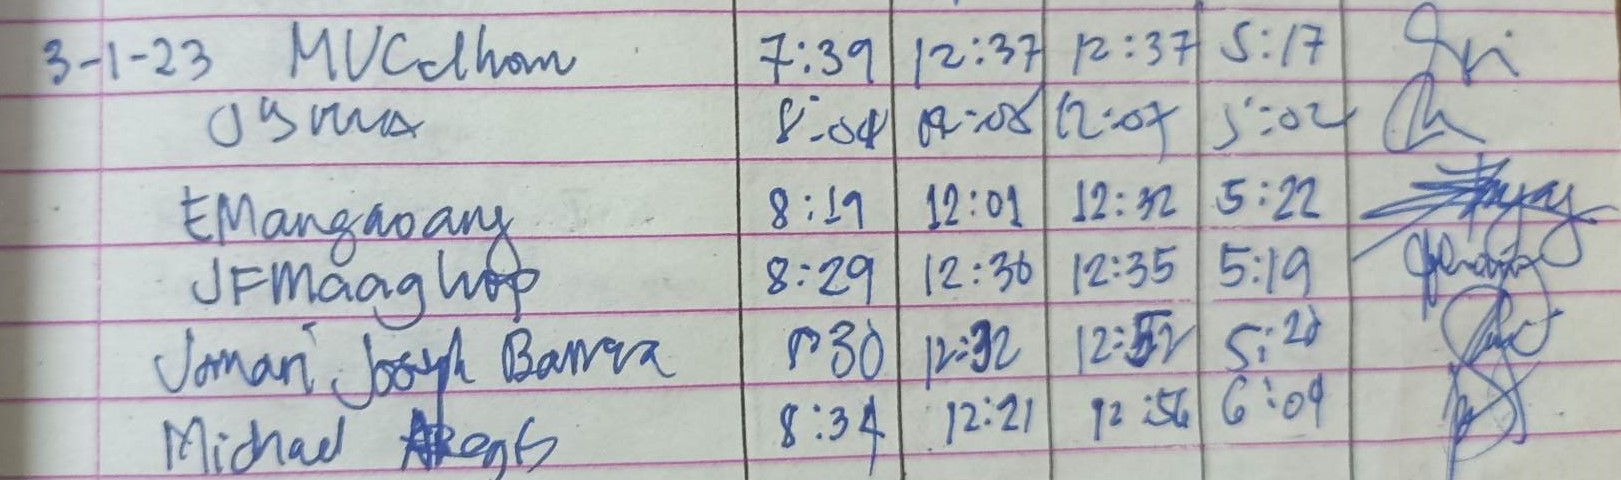 3-1-23 MVCdhom 7:39 12:37 12:37 5:17
8:04 12:08 12:07 5:02
EMangaoang 8:19 12:01 12:32 5:22
JFMaaghop 8:29 12:36 12:35 5:19
Jomari Joseph Barrera 8:30 12:32 12:52 5:20
Michael 8:34 12:21 12:56 6:09